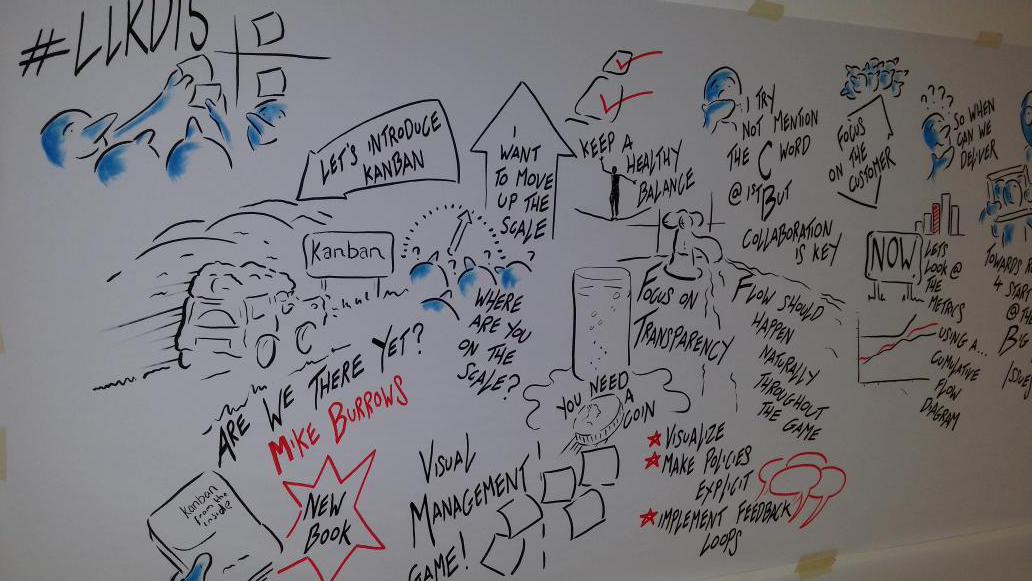 #LLKD15
LET'S INTRODUCE
KANBAN
Kanban
ARE WE THERE YET?
MIKE BURROWS
Kanban
from the
inside
NEW
BOOK
WHERE
ARE YOU
ON THE
SCALE?
I
WANT
TO MOVE
UP THE
SCALE
KEEP A
HEALTHY
BALANCE
VISUAL
MANAGEMENT
GAME!
YOU NEED
A
COIN
FOCUS ON
TRANSPARENCY
VISUALIZE
MAKE POLICIES
EXPLICIT
IMPLEMENT FEEDBACK
LOOPS
I TRY
NOT MENTION
THE C WORD
@ 1ST BUT
COLLABORATION
IS KEY
FLOW SHOULD
HAPPEN
NATURALLY
THROUGHOUT
THE GAME
FOCUS
ON THE
CUSTOMER
SO WHEN
CAN WE
DELIVER
NOW
LETS
LOOK @
THE
METRICS
USING A...
CUMULATIVE
FLOW
DIAGRAM
TOWARDS
4 START
@ THE
BIG